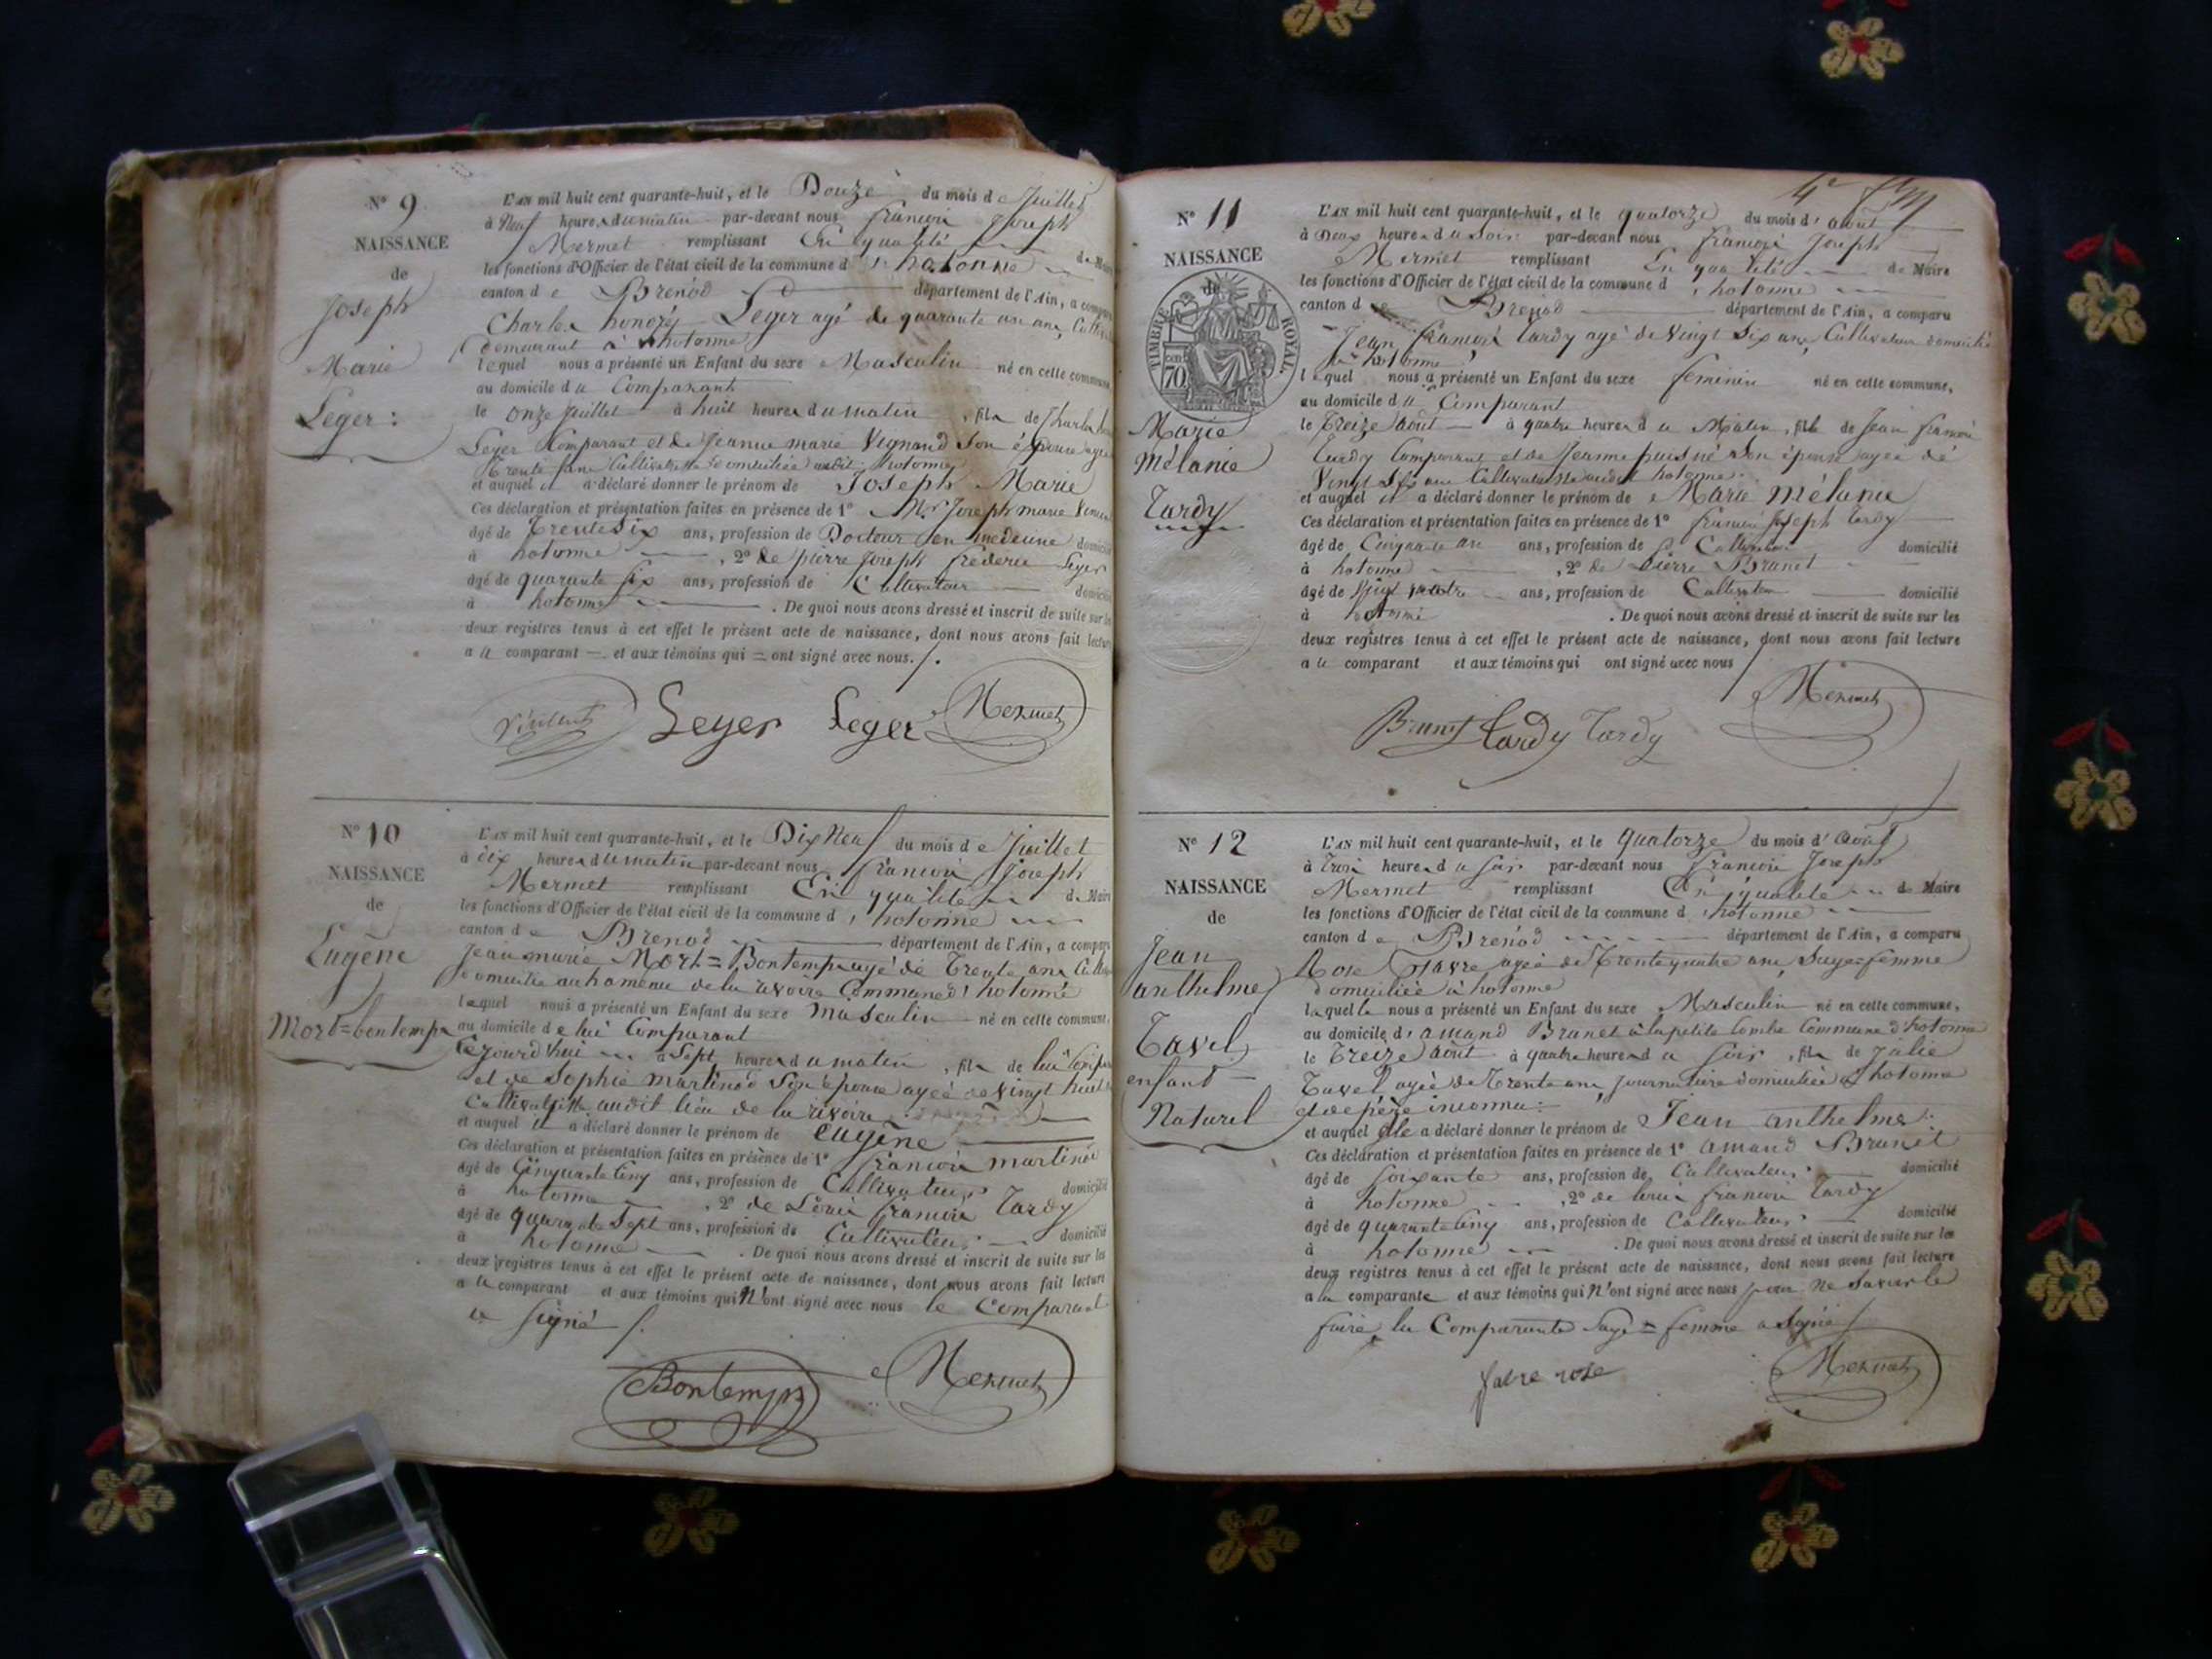 N° 9
NAISSANCE
de
Joseph
Marie
Leger :
L'AN mil huit cent quarante-huit, et le Douze du mois de Juillet
à Neuf heures du matin par-devant nous francois Joseph
Mermet remplissant En qualité de Maire
les fonctions d'Officier de l'état civil de la commune d'hotonne
canton de Brenod département de l'Ain, a comparu
Charles honoré Leger agé de quarante un ans,
demeurant à hotonne
lequel nous a présenté un Enfant du sexe Masculin né en cette commune
au domicile du Comparant
le onze juillet à huit heures du matin, fils de Charles
Leger Comparant et de Jeanne marie Vignand Son épouse agée
trente ans Cultivatrice domiciliée audit hotonne
et auquel il a déclaré donner le prénom de Joseph Marie
Ces déclaration et présentation faites en présence de 1° Mr Joseph marie
âgé de trente Six ans, profession de Docteur en medecine domicilié
à hotonne , 2° de pierre Joseph frederic Leger
âgé de quarante six ans, profession de Cultivateur domicilié
à hotonne . De quoi nous avons dressé et inscrit de suite sur les
deux registres tenus à cet effet le présent acte de naissance, dont nous avons fait lecture
a u comparant et aux témoins qui ont signé avec nous.
Leger Leger Mermet
N° 10
NAISSANCE
de
Eugène
Mort=bontemps
L'AN mil huit cent quarante-huit, et le Dix Neuf du mois de Juillet
à dix heures du matin par-devant nous francois Joseph
Mermet remplissant En qualité de Maire
les fonctions d'Officier de l'état civil de la commune d'hotonne
canton de Brenod département de l'Ain, a comparu
Jean marie Mort=Bontemps agé de trente ans
domicilié au hameau de la rivoire Commune d'hotonne
lequel nous a présenté un Enfant du sexe masculin né en cette commune,
au domicile de lui Comparant
Cejourd'hui à Sept heures du matin, fils de lui Comparant
et de Sophie martinod Son épouse agée de vingt huit
Cultivatrice audit lieu de la rivoire
et auquel il a déclaré donner le prénom de eugène
Ces déclaration et présentation faites en présence de 1° francois martinod
âgé de Cinquante Cinq ans, profession de Cultivateur domicilié
à hotonne , 2° de Louis francois Tardy
âgé de quarante Sept ans, profession de Cultivateur domicilié
à hotonne . De quoi nous avons dressé et inscrit de suite sur les
deux registres tenus à cet effet le présent acte de naissance, dont nous avons fait lecture
a u comparant et aux témoins qui N'ont signé avec nous le Comparant
a signé
Bontemps Mermet
4e
N° 11
NAISSANCE
de
TIMBRE ROYAL.
70
Marie
Mélanie
Tardy
L'AN mil huit cent quarante-huit, et le quatorze du mois d'août
à Deux heures du Soir par-devant nous francois Joseph
Mermet remplissant En qualité de Maire
les fonctions d'Officier de l'état civil de la commune d'hotonne
canton de Brenod département de l'Ain, a comparu
Jean francois tardy agé de Vingt Six ans, Cultivateur domicilié
à hotonne
lequel nous a présenté un Enfant du sexe feminin né en cette commune,
au domicile du Comparant
le treize août à quatre heures du Matin, fille de Jean francois
tardy Comparant et de Jeanne puisné Son épouse agée de
Vingt Six ans Cultivatrice audit hotonne
et auquel il a déclaré donner le prénom de Marie mélanie
Ces déclaration et présentation faites en présence de 1° francois joseph tardy
âgé de Cinquante ans, profession de Cultivateur domicilié
à hotonne , 2° de pierre Brunet
âgé de Vingt quatre ans, profession de Cultivateur domicilié
à hotonne . De quoi nous avons dressé et inscrit de suite sur les
deux registres tenus à cet effet le présent acte de naissance, dont nous avons fait lecture
a u comparant et aux témoins qui ont signé avec nous
Brunet tardy Tardy Mermet
N° 12
NAISSANCE
de
Jean
anthelme
Tavel
enfant
Naturel
L'AN mil huit cent quarante-huit, et le quatorze du mois d'août
à trois heures du soir par-devant nous francois Joseph
Mermet remplissant En qualité de Maire
les fonctions d'Officier de l'état civil de la commune d'hotonne
canton de Brenod département de l'Ain, a comparu
Rose favre agée de trente quatre ans, Sage=femme
domiciliée à hotonne
laquelle nous a présenté un Enfant du sexe Masculin né en cette commune,
au domicile d'amand Brunet à la petite Combe Commune d'hotonne
le treize août à quatre heures du soir, fils de Julie
Tavel agée de trente ans, journalière domiciliée à hotonne
et de père inconnu :
et auquel elle a déclaré donner le prénom de Jean anthelme
Ces déclaration et présentation faites en présence de 1° amand Brunet
âgé de soixante ans, profession de Cultivateur domicilié
à hotonne , 2° de louis francois Tardy
âgé de quarante Cinq ans, profession de Cultivateur domicilié
à hotonne . De quoi nous avons dressé et inscrit de suite sur les
deux registres tenus à cet effet le présent acte de naissance, dont nous avons fait lecture
a la comparante et aux témoins qui N'ont signé avec nous pour ne Savoir le
faire, la Comparante Sage=femme a Signé
favre rose Mermet